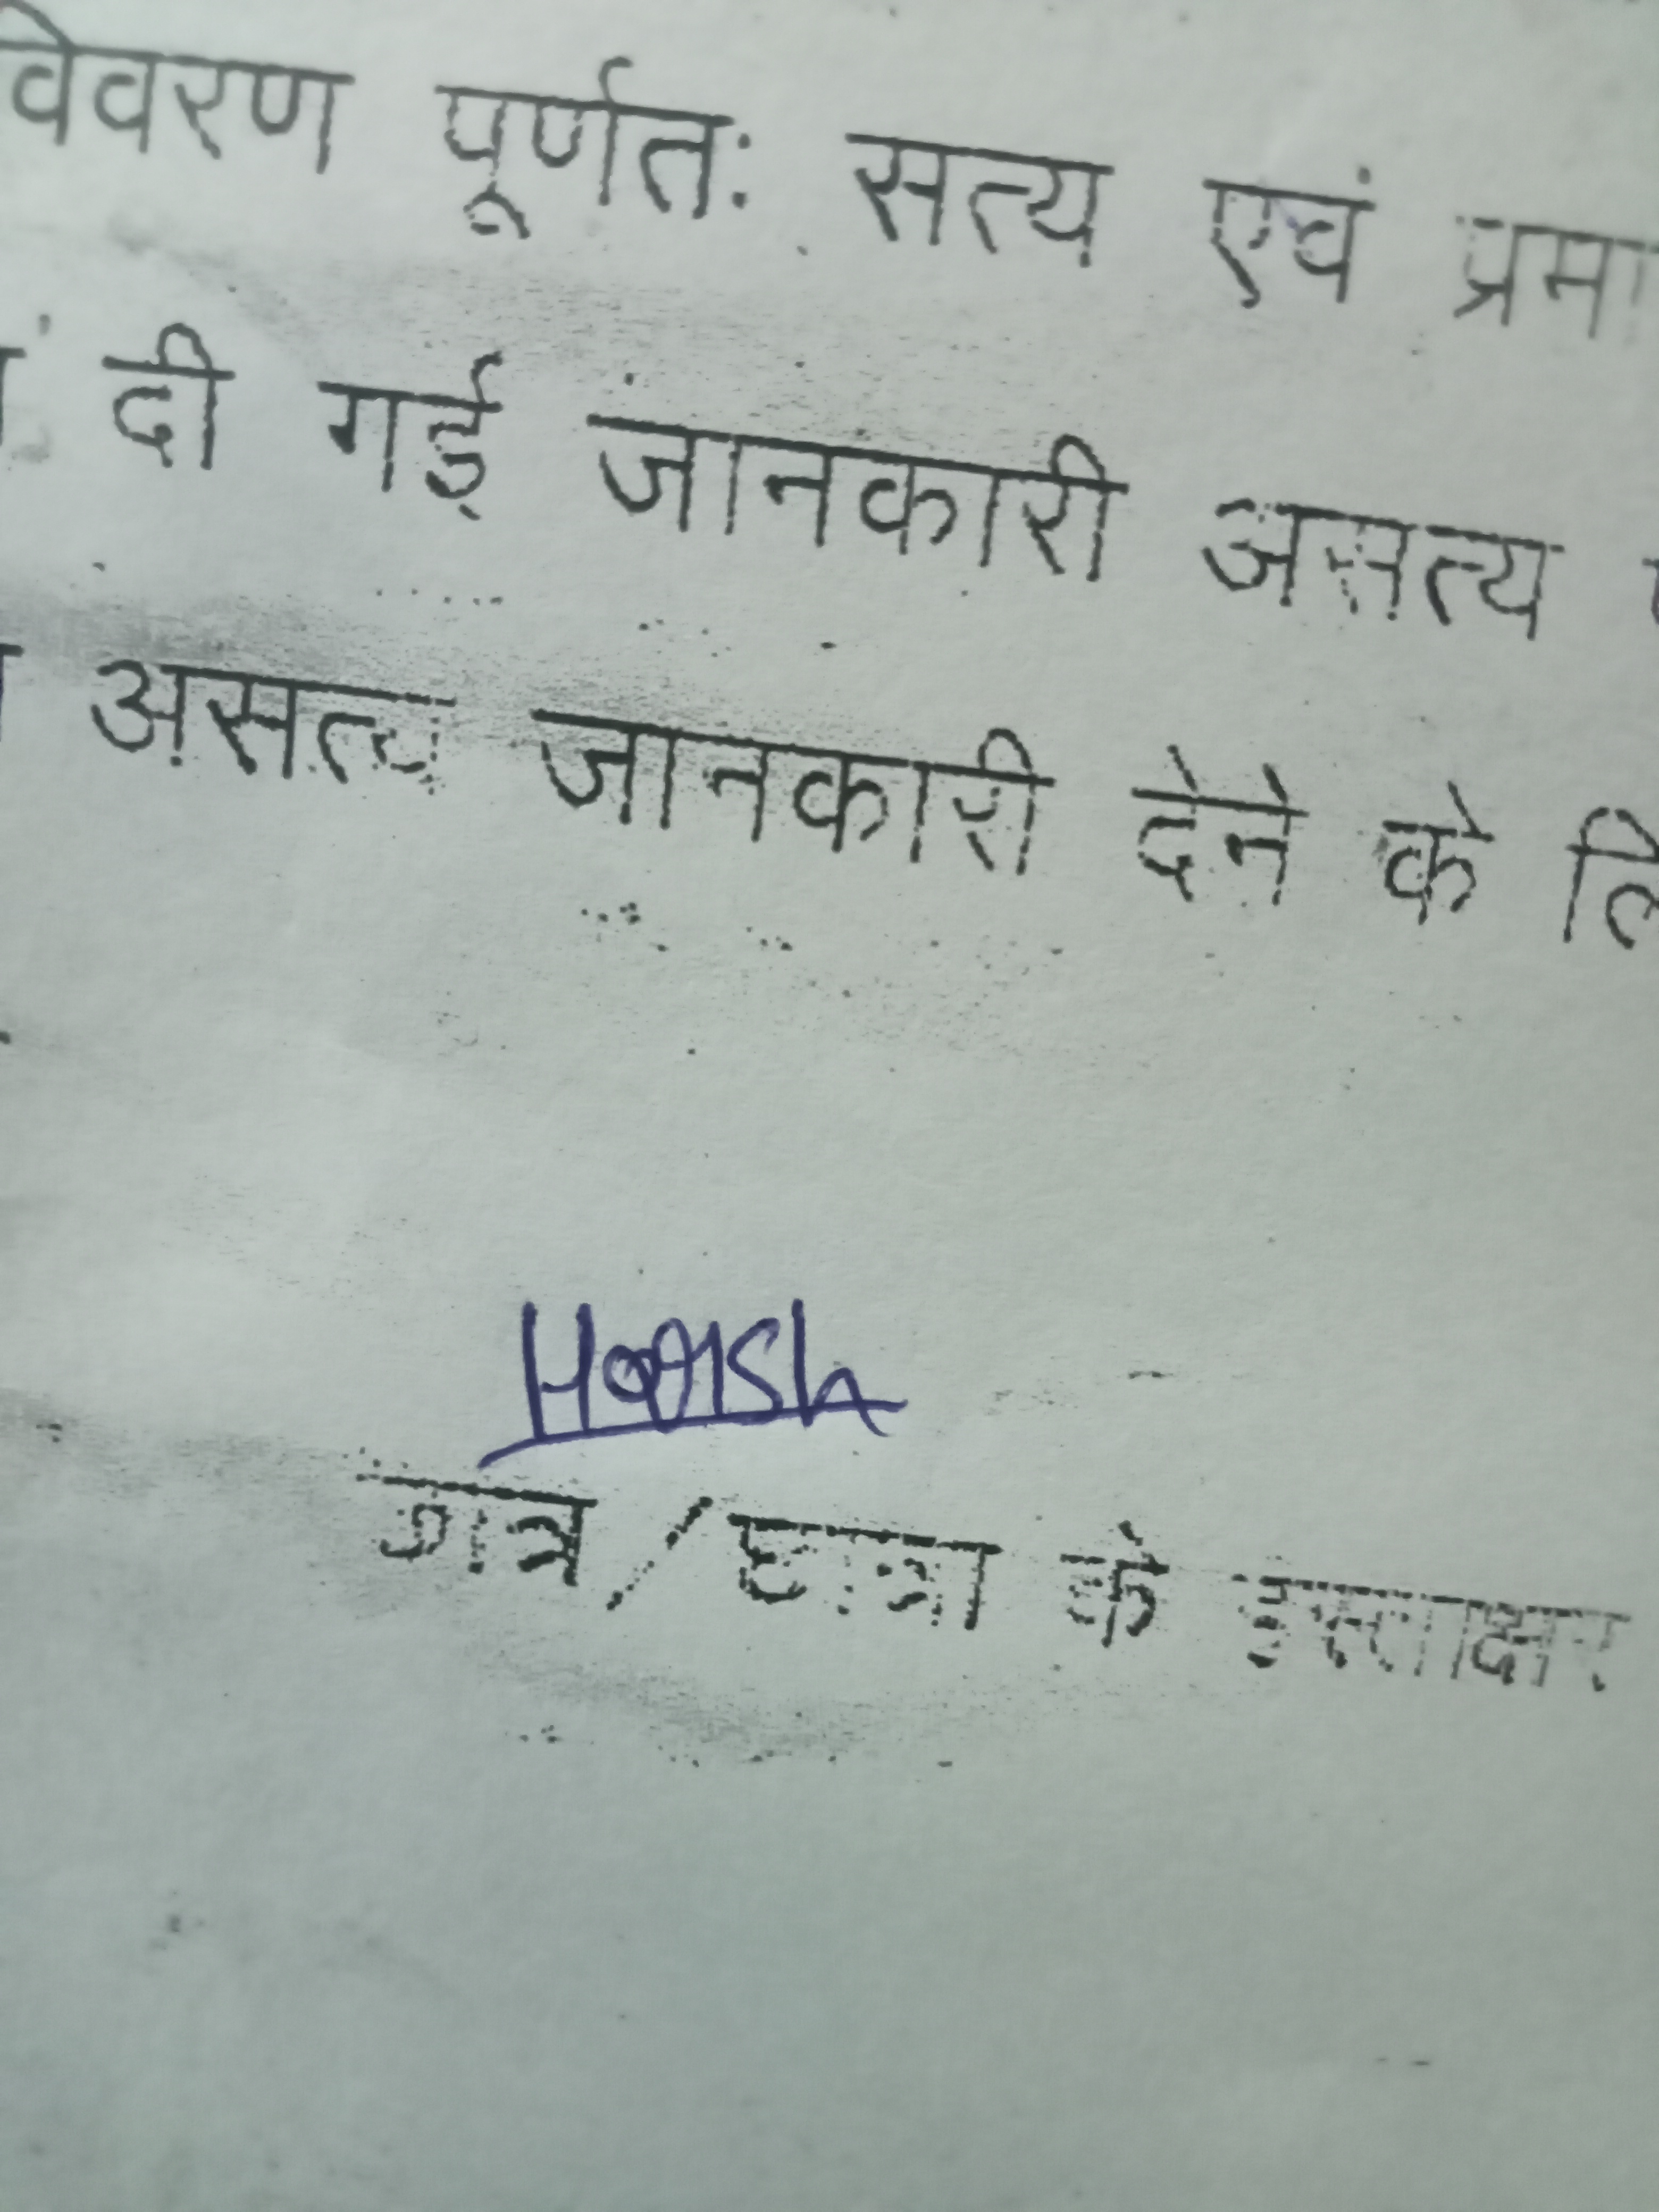 विवरण पूर्णतः सत्य एवं
दी गई जानकारी असत्य
असत्य जानकारी देने के
छात्र/छात्रा के हस्ताक्षर